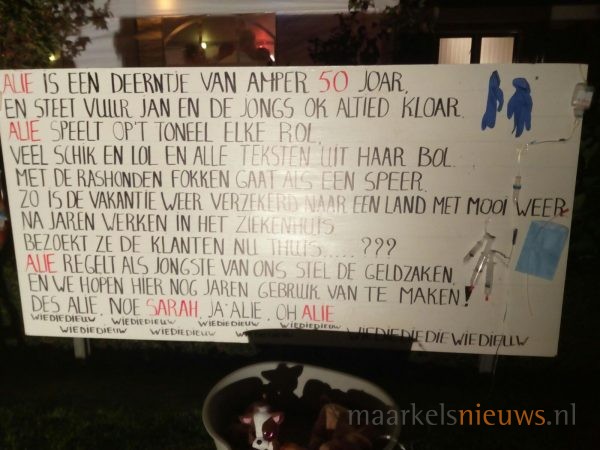 ALIE IS EEN DEERNTJE VAN AMPER 50 JOAR,
EN STEET VUUR JAN EN DE JONGS OK ALTIED KLOAR.
ALIE SPEELT OP'T TONEEL ELKE ROL,
VEEL SCHIK EN LOL EN ALLE TEKSTEN UIT HAAR BOL.
MET DE RASHONDEN FOKKEN GAAT ALS EEN SPEER,
ZO IS DE VAKANTIE WEER VERZEKERD NAAR EEN LAND MET MOOI WEER
NA JAREN WERKEN IN HET ZIEKENHUIS
BEZOEKT ZE DE KLANTEN NU THUIS.....???
ALIE REGELT ALS JONGSTE VAN ONS STEL DE GELDZAKEN,
EN WE HOPEN HIER NOG JAREN GEBRUIK VAN TE MAKEN!
DES ALIE, NOE SARAH, JA ALIE, OH ALIE
WIEDIEDIEUW WIEDIEDIEUW WIEDIEDIEUW WIEDIEDIEUW
WIEDIEDIEUW WIEDIEDIEUW WIEDIEDIEDIEWIEDIEUW
maarkelsnieuws.nl